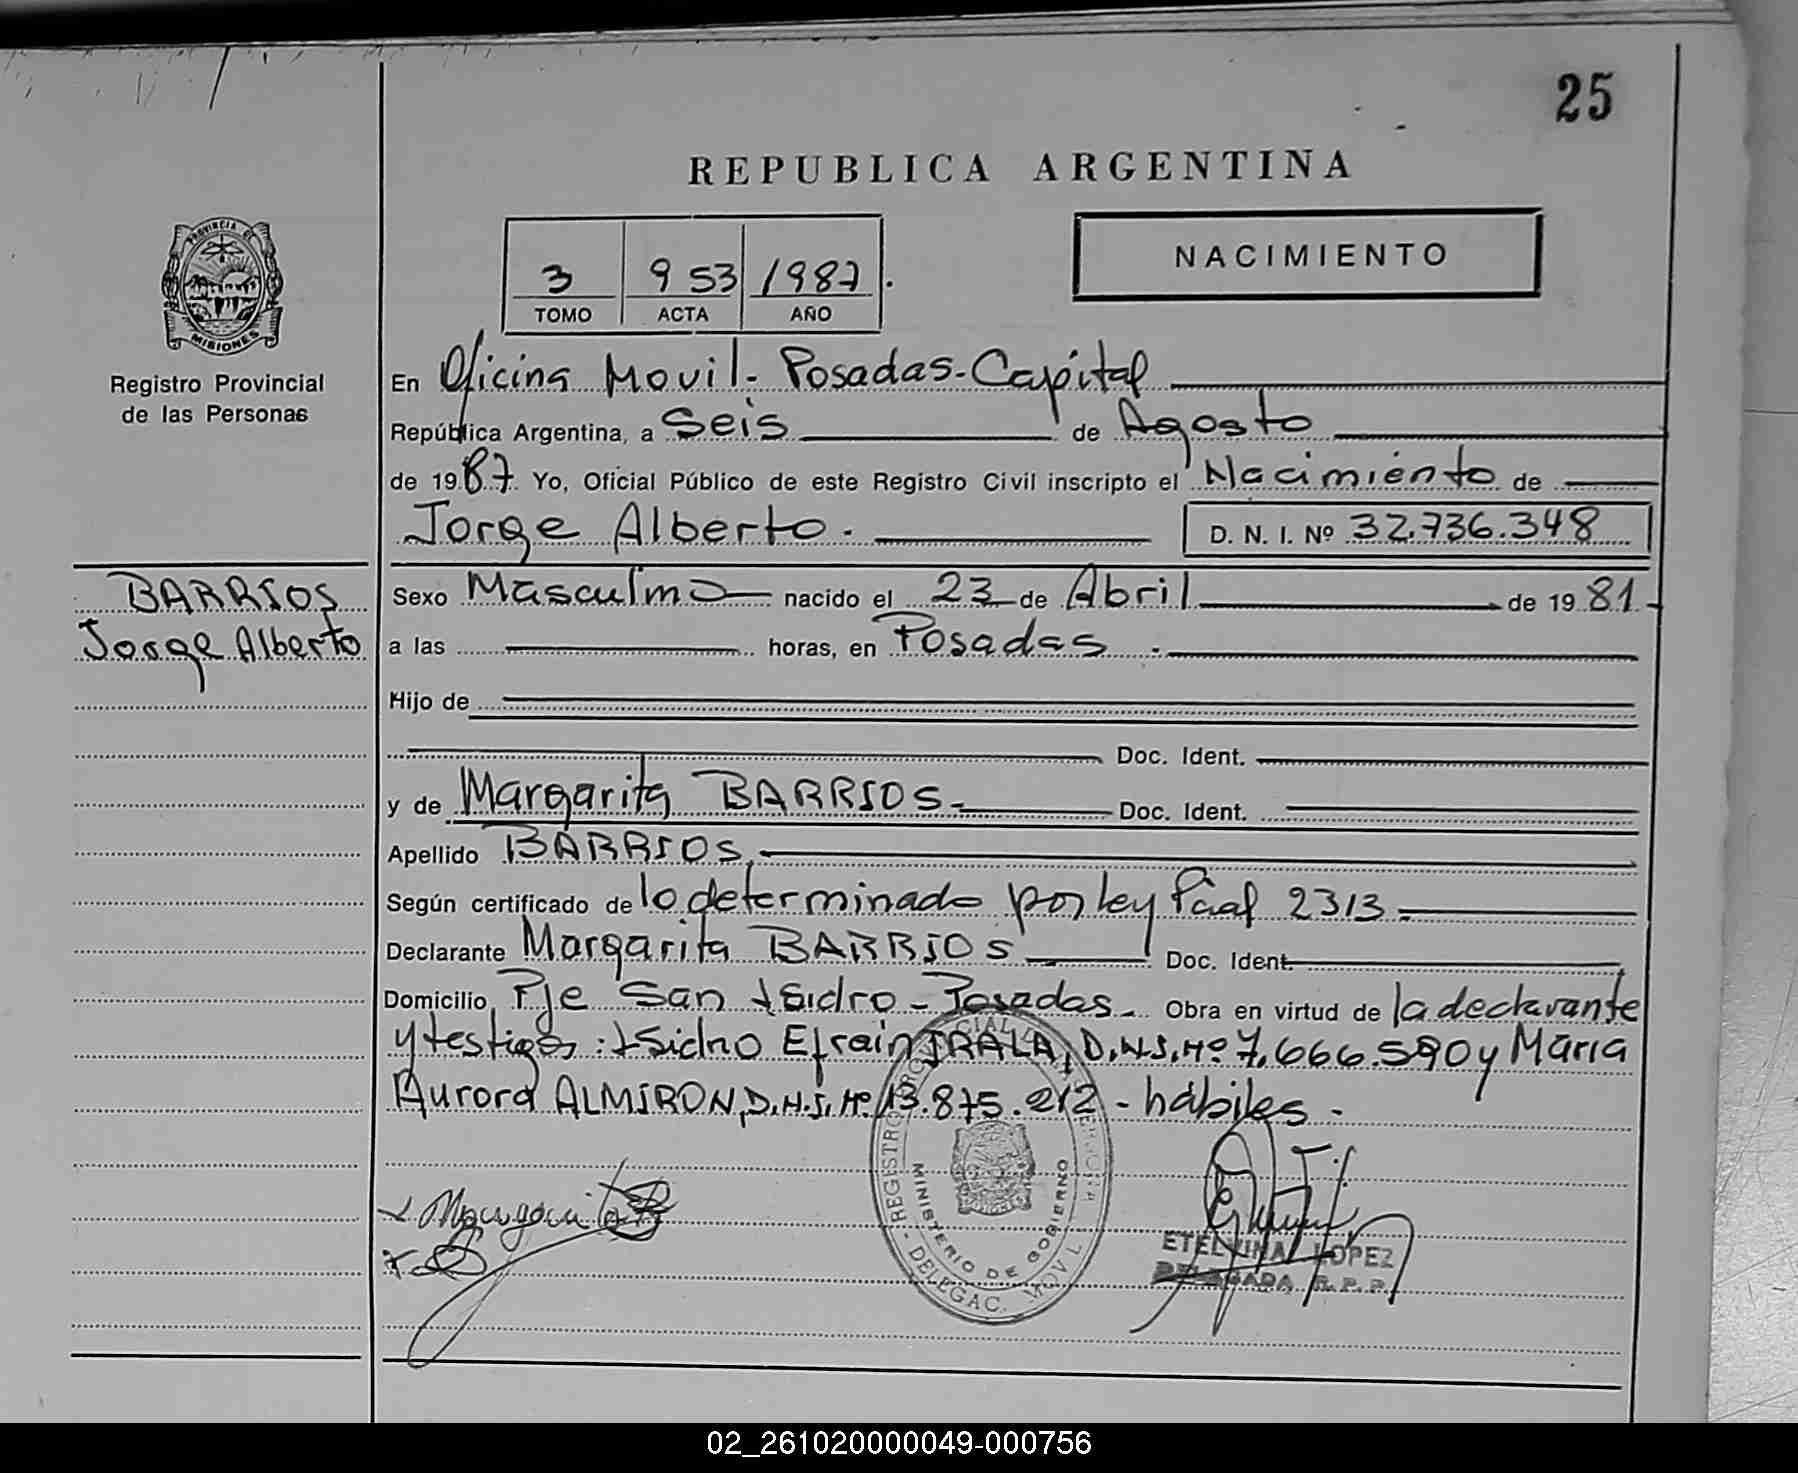 25
REPUBLICA ARGENTINA
3 953 1987
TOMO ACTA AÑO
NACIMIENTO
PROVINCIA DE
MISIONES
Registro Provincial
de las Personas
En Oficina Movil - Posadas - Capital
República Argentina, a Seis de Agosto
de 1987 Yo, Oficial Público de este Registro Civil inscripto el Nacimiento de
Jorge Alberto. D. N. I. Nº 32.736.348
BARRIOS
Jorge Alberto
Sexo Masculino nacido el 23 de Abril de 1981
a las horas, en Posadas.
Hijo de
Doc. Ident.
y de Margarita BARRIOS- Doc. Ident.
Apellido BARRIOS.
Según certificado de lo determinado por ley 2313-
Declarante Margarita BARRIOS Doc. Ident.
Domicilio Pje San Isidro - Posadas- Obra en virtud de la declarante
y testigos: Isidro Efrain IRALA, D.N.I. Nº 7.666.590 y Maria
Aurora ALMIRON, D.N.I. Nº 13.875.212 - hábiles.-
MINISTERIO DE GOBIERNO
DELEGAC. MOVIL
ETELVINA LOPEZ
DELEGADA R.P.P.
02_261020000049-000756